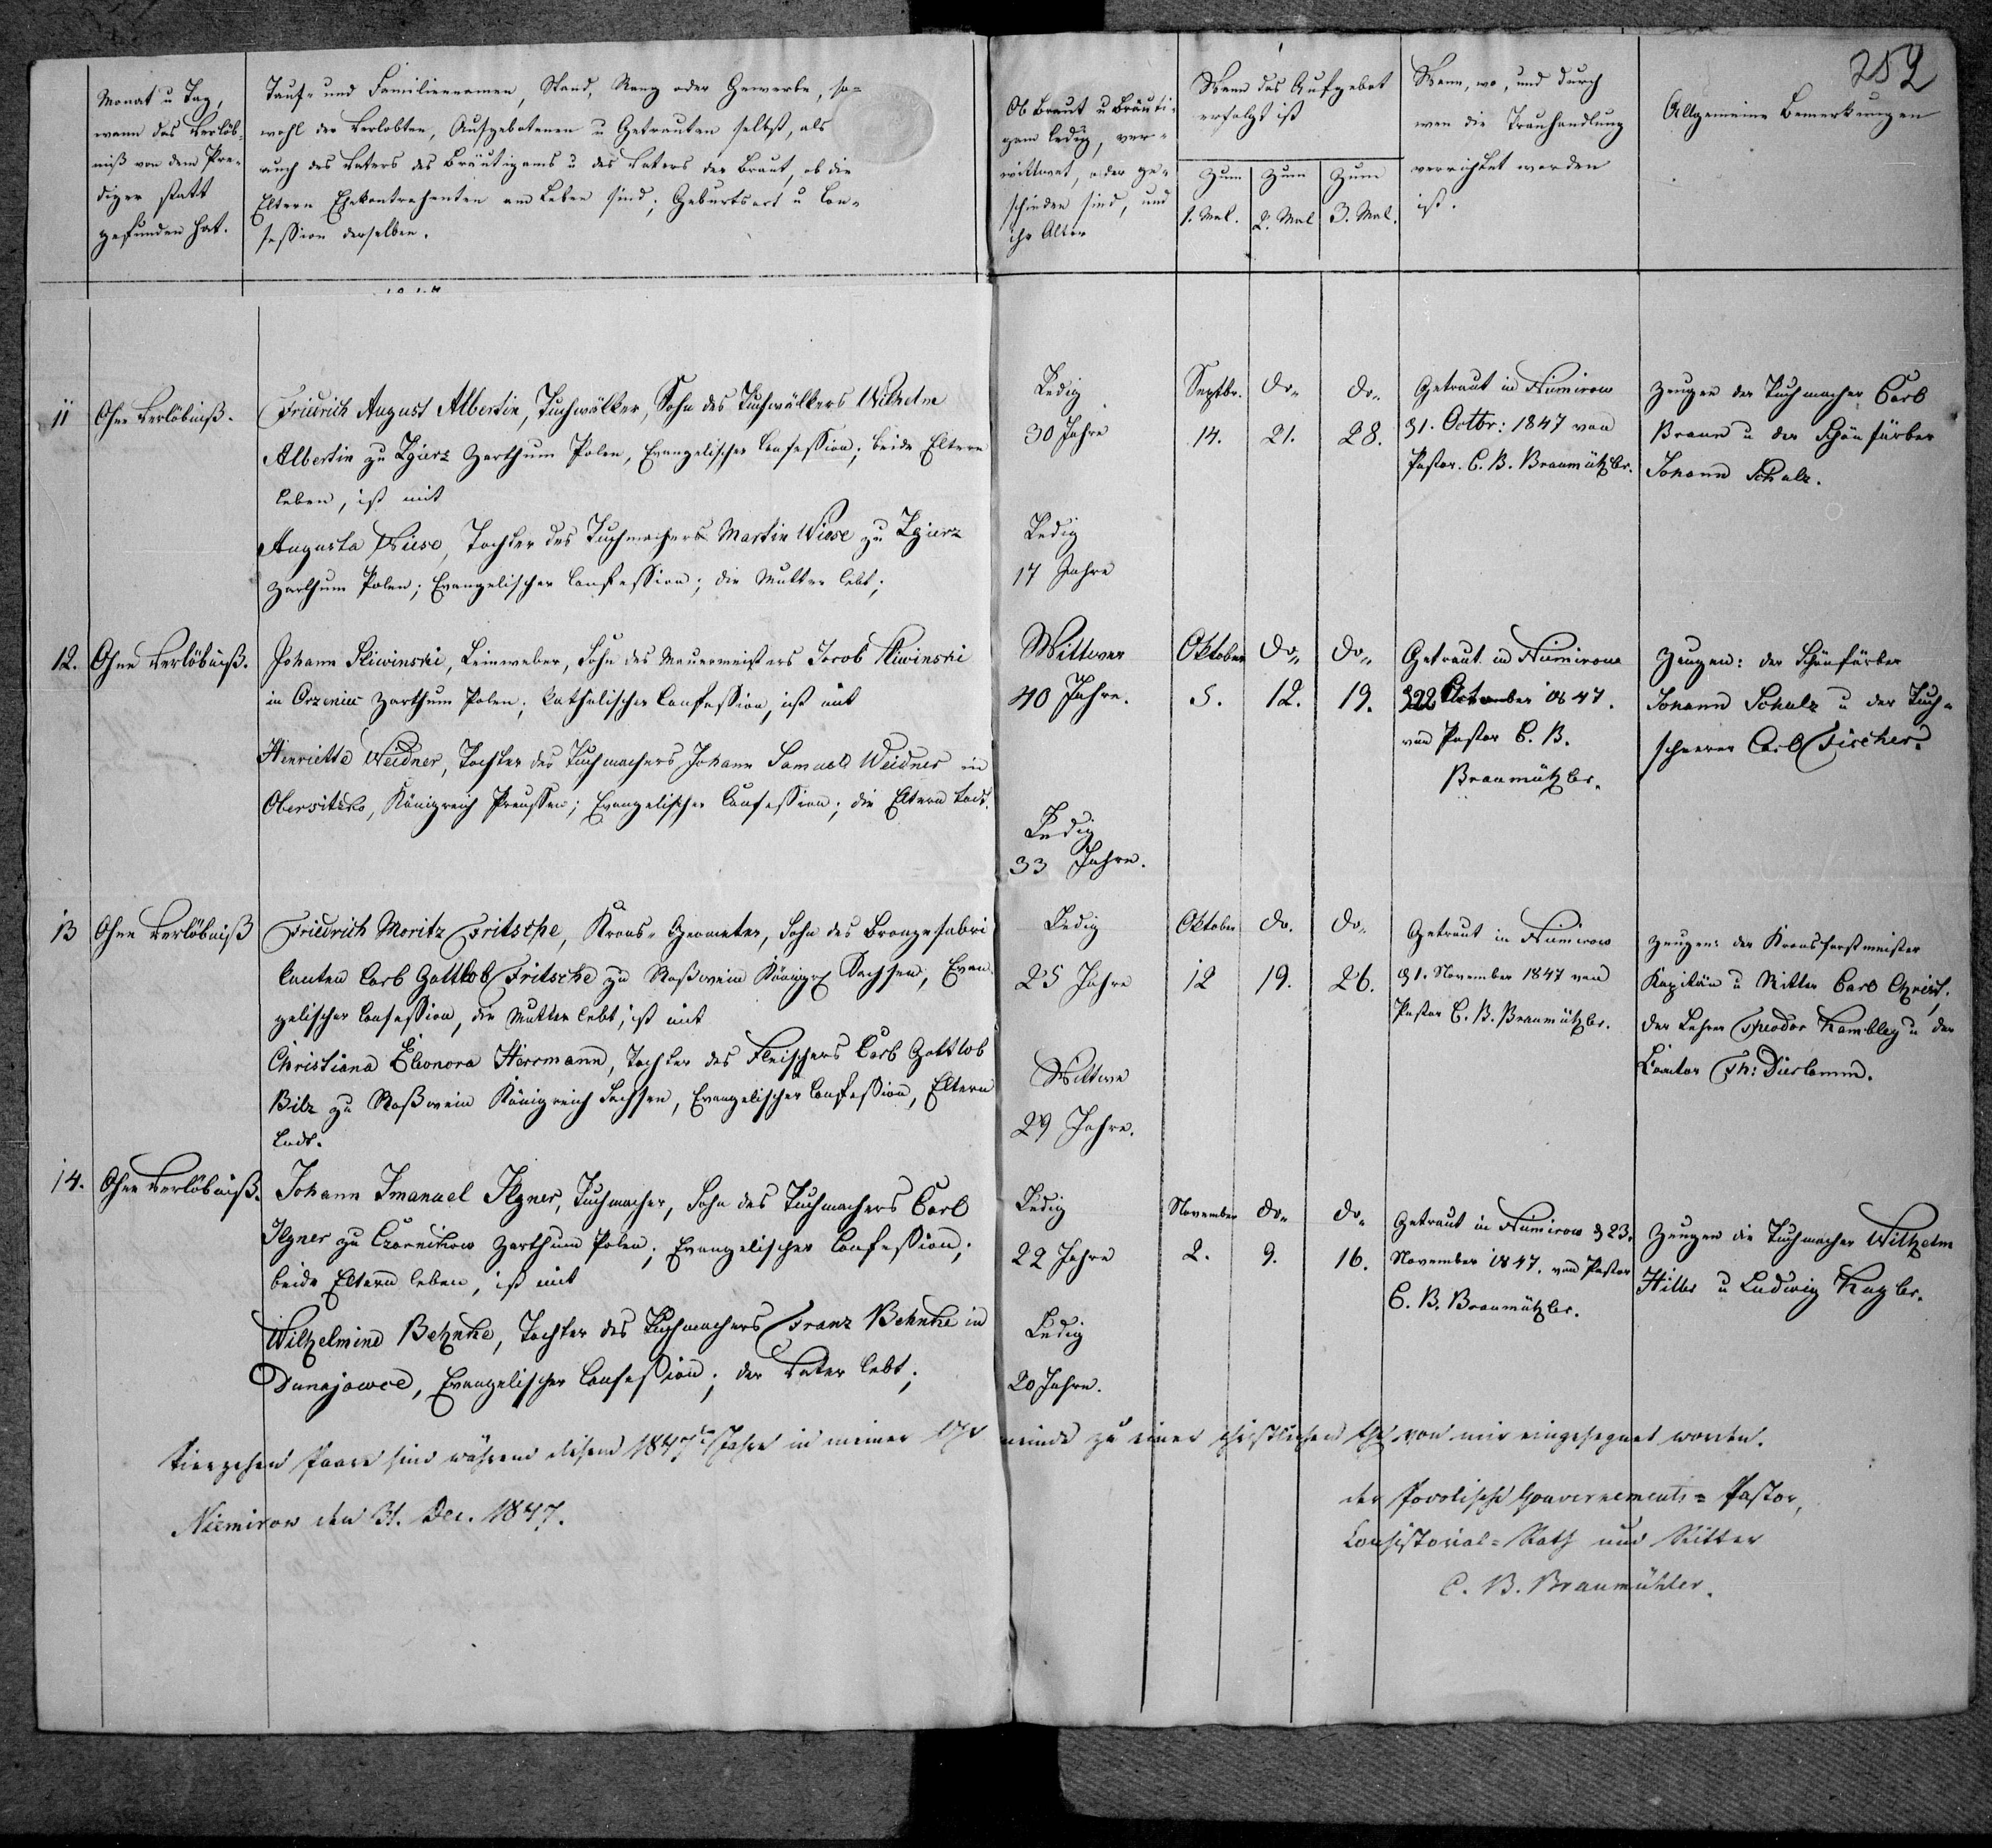 252
Monat u Tag,
wann das Verlöb-
niß von dem Pre-
diger statt
gefunden hat.
Tauf- und Familiennamen, Stand, Rang oder Gewerbe, so-
wohl der Verlobten, Aufgebotenen u Getrauten selbst, als
auch des Vaters des Bräutigams u des Vaters der Braut, ob die
Eltern Ehekontrahenten am Leben sind; Geburtsort u Con-
fession derselben.
Ob Braut u Bräuti-
gam ledig, ver-
wittwet, oder ge-
schieden sind, und
ihr Alter
Wann das Aufgebot
erfolgt ist
zum
1. Mal.
zum
2. Mal
zum
3. Mal.
Wann, wo, und durch
wen die Trauhandlung
verrichtet worden
ist.
Allgemeine Bemerkungen
11
Ohne Verlöbniß.
Friedrich August Albertin, Tuchwalker, Sohn des Tuchwalkers Wilhelm
Albertin zu Zgierz Zarthum Polen, Evangelischer Confession; beide Eltern
leben, ist mit
Augusta Wiese, Tochter des Tuchmachers Martin Wiese zu Zgierz
Zarthum Polen; Evangelischer Confession; die Mutter lebt;
Ledig
30 Jahre
Ledig
17 Jahre
Septbr.
14.
do„
21.
do„
28.
Getraut in Niemirow
d 1. Octbr: 1847 von
Pastor. C. B. Braumühler.
Zeugen der Tuchmacher Carl
Braun u der Schönfärber
Johann Schulz.
12.
Ohne Verlöbniß.
Johann Sliwinski, Leinweber, Sohn des Mauermeisters Jacob Sliwinski
in Orzeniec Zarthum Polen; Katholischer Confession, ist mit
Henriette Weidner, Tochter des Tuchmachers Johann Samuel Weidner in
Obersitzko, Königreich Preussen; Evangelischer Confession; die Eltern todt.
Wittwer
40 Jahre.
Ledig
33 Jahre.
Oktober
5.
do„
12.
do„
19.
Getraut in Niemirow
d 22 October 1847.
von Pastor C. B.
Braumühler.
Zeugen: der Schönfärber
Johann Schulz u der Tuch-
scheerer Carl Fischer.
13
Ohne Verlöbniß
Friedrich Moritz Fritsche, Krons-Geometer, Sohn des Bronzefabri
kanten Carl Gottlob Fritsche zu Roßwein Königr Sachsen, Evan-
gelischer Confession, die Mutter lebt, ist mit
Christiana Eleonora Herrmann, Tochter des Fleischers Carl Gottlob
Bilz zu Roßwein Königreich Sachsen, Evangelischer Confession, Eltern
todt.
Ledig
25 Jahre
Wittwe
29 Jahre.
Oktober
12
do.
19.
do„
26.
Getraut in Niemirow
d 1. November 1847 von
Pastor C. B. Braumühler.
Zeugen: der Kronsforstmeister
Kapitän u Ritter Carl Christ,
der Lehrer Theodor Kambley u der
Cantor Th: Dierlamm.
14.
Ohne Verlöbniß.
Johann Imanuel Ilgner, Tuchmacher, Sohn des Tuchmachers Carl
Ilgner zu Czarnikow Zarthum Polen; Evangelischer Confession;
beide Eltern leben, ist mit
Wilhelmine Behnke, Tochter des Tuchmachers Franz Behnke in
Dunajowce, Evangelischer Confession; der Vater lebt;
Ledig
22 Jahre
Ledig
20 Jahre.
November
2.
do„
9.
do„
16.
Getraut in Niemirow d 23.
November 1847. von Pastor
C. B. Braumühler.
Zeugen die Tuchmacher Wilhelm
Hiller u Ludwig Kugler.
Vierzehn Paare sind während diesem 1847ten Jahre in meiner Ge meinde zu einer christlichen Ehe von mir eingesegnet worden.
Niemirow den 31. Dec. 1847.
der Podolische Gouvernements-Pastor,
Consistorial-Rath und Ritter
C. B. Braumühler.